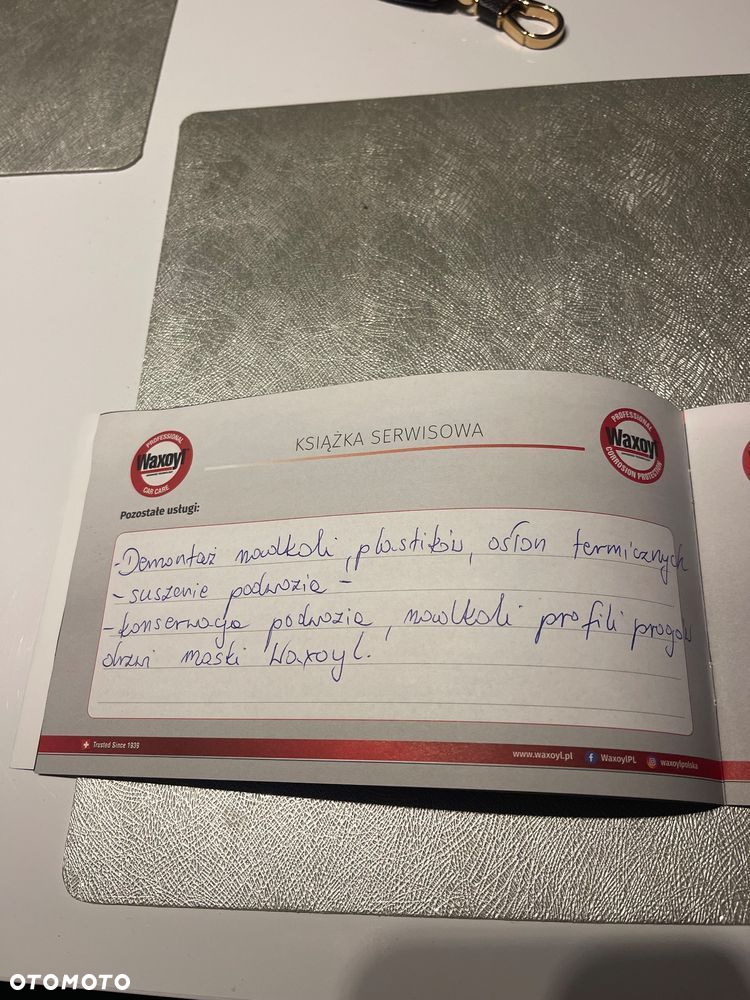 KSIĄŻKA SERWISOWA
PROFESSIONAL
Waxoyl
CAR CARE
PROFESSIONAL
Waxoyl
CORROSION PROTECTION
Pozostałe usługi:
- Demontaż nadkoli, plastików, osłon termicznych
- suszenie podwozia -
- konserwacja podwozia, nadkoli profili progów
drzwi maski Waxoyl.
Trusted Since 1939
www.waxoyl.pl WaxoylPL waxoylpolska
OTOMOTO